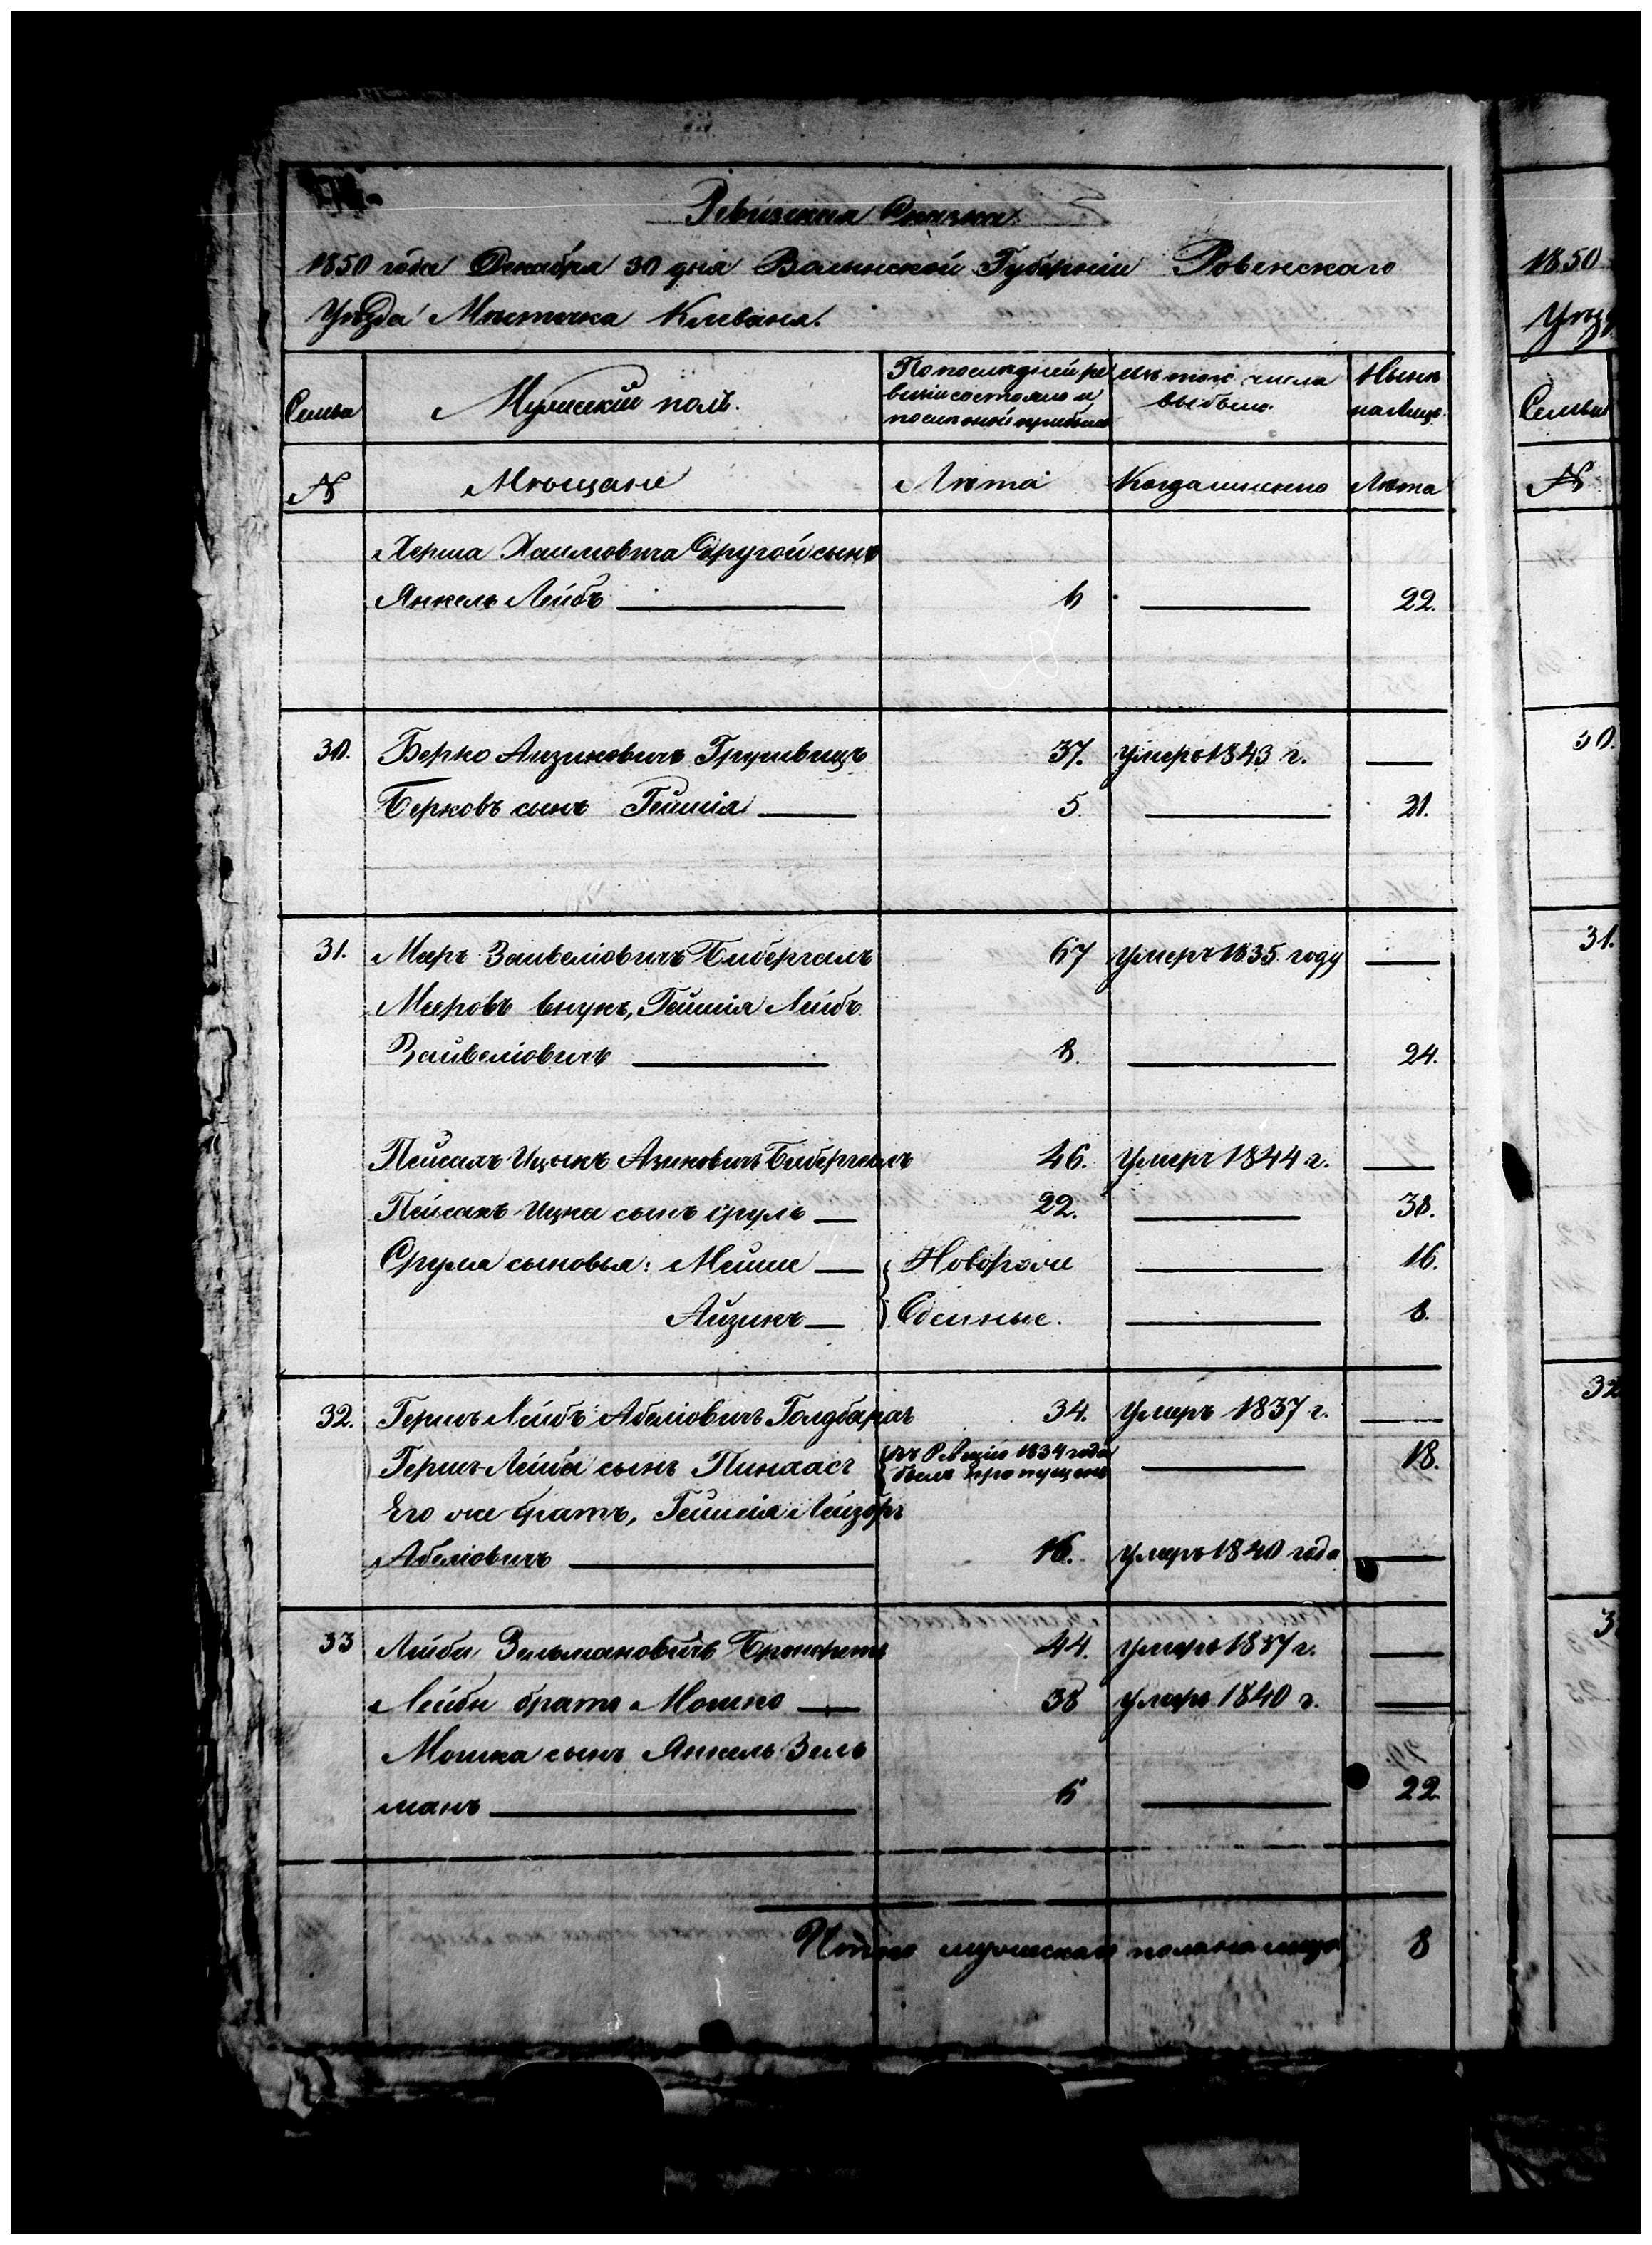 Ревизская Сказка
1850 года Декабря 30 дня Волынской Губерніи Ровенскаго
Уѣзда Мѣстечка Клеваня.
Семьи
Мужескій полъ.
По послѣдней ре
визіи состояло и
послѣ оной прибыло
Изъ того числа
выбыло.
Нынѣ
на лицо.
№
Мѣщане
Лѣта
Когда именно
Лѣта
Герша Хаимовича другой сынъ
Янкель Лейбъ 6 22.
30. Берко Аизиковичъ 37. умеръ 1843 г.
Берковъ сынъ Гейшія 5. 21.
31. Меръ Зайвеліовичъ Бибергалъ 67 умеръ 1835 году
Мееровъ внукъ, Гейшія Лейбъ
Зайвеліовичъ 8. 24.
Пейсахъ Ицыкъ Азиковичъ Бибергалъ 46. умеръ 1844 г.
Пейсахъ Ицка сынъ Сруль 22. 38.
Сруля сыновья: Мейше Новорож 16.
Айзикъ Обенные. 8.
32. Гершъ Лейбъ Абеліовичъ 34. умеръ 1837 г.
Гершъ-Лейба сынъ Пинхасъ въ Ревизію 1834 года 18.
былъ пропущенъ
Его же братъ, Гейшія Лейзоръ
Абеліовичъ 16. умеръ 1840 года
33 Лейба Зельмановичъ 44. умеръ 1837 г.
Лейбы братъ Мошко 38 умеръ 1840 г.
Мошка сынъ Янкель Зель
манъ 6 22.
Итого мужеска пола на лицо 8
1850
Уѣзд
Семьи
№
30.
31.
32
3